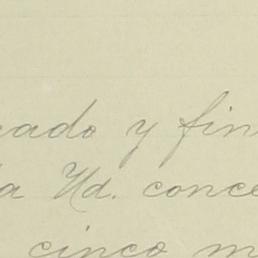 cado y fin
a Ud. conce
cinco m